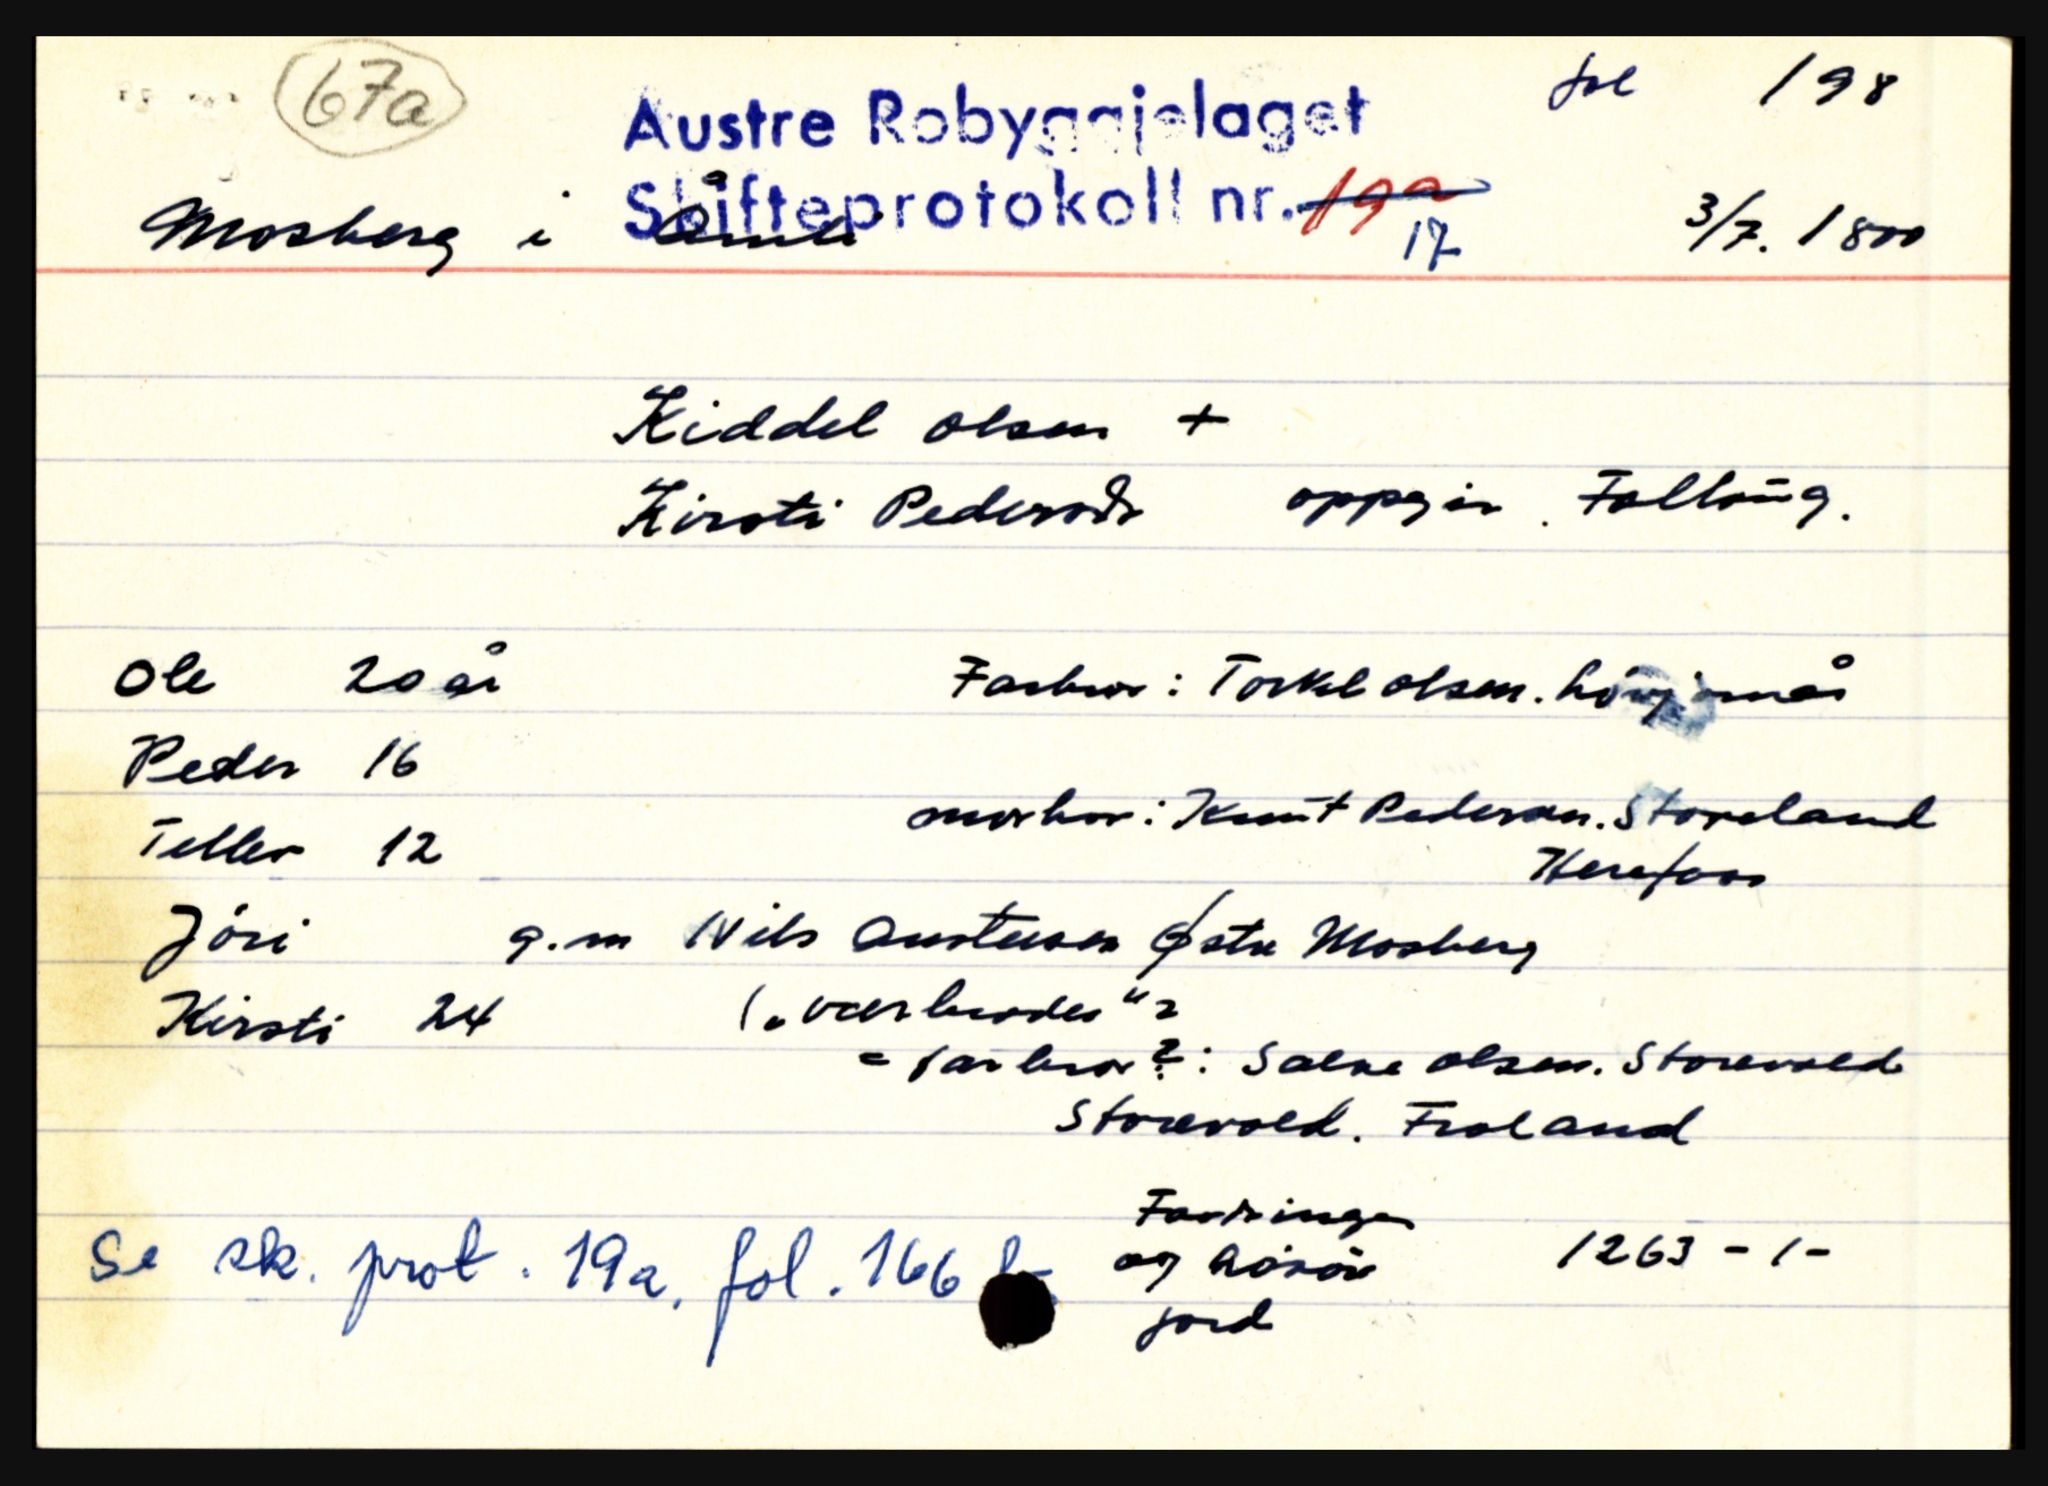 67a
Austre Robyggjelaget fol 198
Skifteprotokoll nr. 19a
Mosberg i Åmli 17 3/7. 1800
Kiddel Olsen +
Kirsti Pedersdr oppgir.
Ole 20 år Farbror: Torkel Olsen.
Peder 16
morbror: Knut Pedersen. Storeland
Tellev 12 Herefoss
Jöri g.m Nils Austensen Østre Mosberg
Kirsti 24 („værbroder"?
= farbror?: Salve Olsen. Storevold
Storevold. Froland
Fordringer
Se sk. prot. 19a, fol. 166 b og lösöre 1263 - 1 -
jord